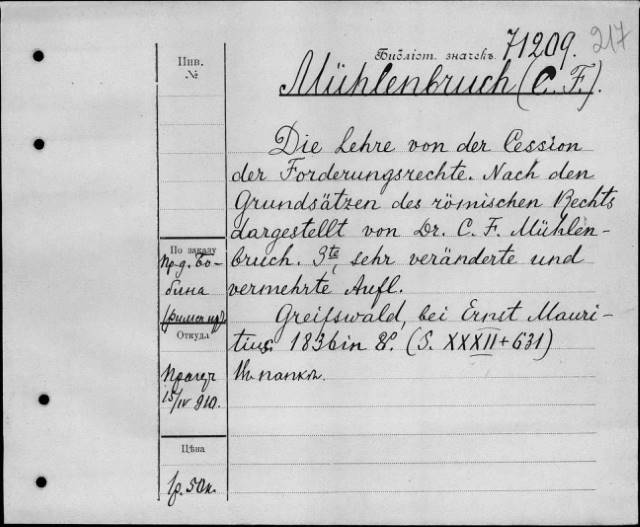 217
Библіот. значекъ 71209.
Инв.
№
Mühlenbruch (C. F.).
Die Lehre von der Cession
der Forderungsrechte. Nach den
Grundsätzen des römischen Rechts
dargestellt von Dr. C. F. Mühlen-
bruch. 3te, sehr veränderte und
vermehrte Aufl.
Greifswald, bei Ernst Mauri-
tius 1836 in 8º. (S. XXXII + 631)
Въ папкѣ.
По заказу
пр-д. Бо-
бина
Откуда
Прагеръ
15/IV 910.
Цѣна
1р. 50к.